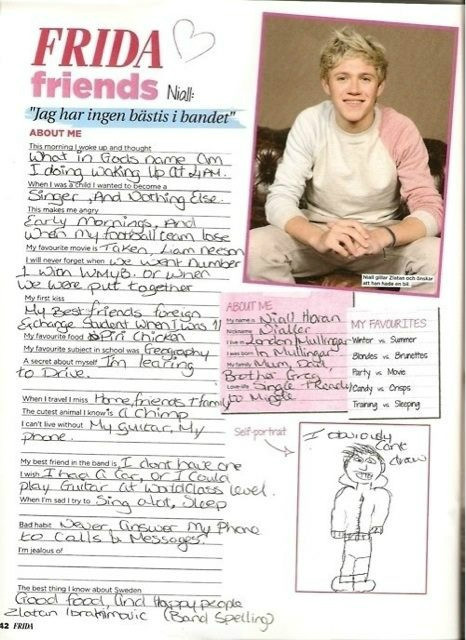 FRIDA
friends Niall:
"Jag har ingen bästis i bandet"
ABOUT ME
This morning I woke up and thought
What in Gods name am
I doing waking up at 4AM.
When I was a child I wanted to become a
Singer, And Nothing Else.
This makes me angry
Early Mornings, And
When My football team lose
My favourite movie is Taken, Liam neeson
I will never forget when we went Number
1 With WMYB. Or When
We were put together
My first kiss
My Best friends foreign
Exchange Student When I was 11
My favourite food is Piri Chicken
My favourite subject in school was Geography
A secret about myself I'm learing
to Drive.
When I travel I miss Home, friends + family
The cutest animal I know is A Chimp
I can't live without My Guitar, My
phone.
My best friend in the band is I dont have one
I wish I had A Car, or I could
play Guitar at World Class level.
When I'm sad I try to Sing alot, Sleep
Bad habit Never, Answer My Phone
to Calls & Messages.
I'm jealous of
The best thing I know about Sweden
Good food And Happy people
Zlatan Ibrahimovic (Band Spelling)
42 FRIDA
Niall gillar Zlatan och önskar
att han hade en bil.
ABOUT ME
My name is Niall Horan
Nickname Nialler
I live in London/Mullingar
I was born in Mullingar
My family Mum, Dad,
Brother Greg
Single + Ready
to Mingle
MY FAVOURITES
Winter vs Summer
Blondes vs Brunettes
Party vs Movie
Candy vs Crisps
Training vs Sleeping
Self-portrait
I obviously
Cant
draw